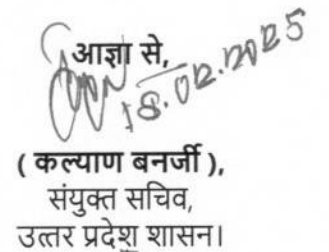 आज्ञा से,
18.02.2025
( कल्याण बनर्जी ),
संयुक्त सचिव,
उत्तर प्रदेश शासन।